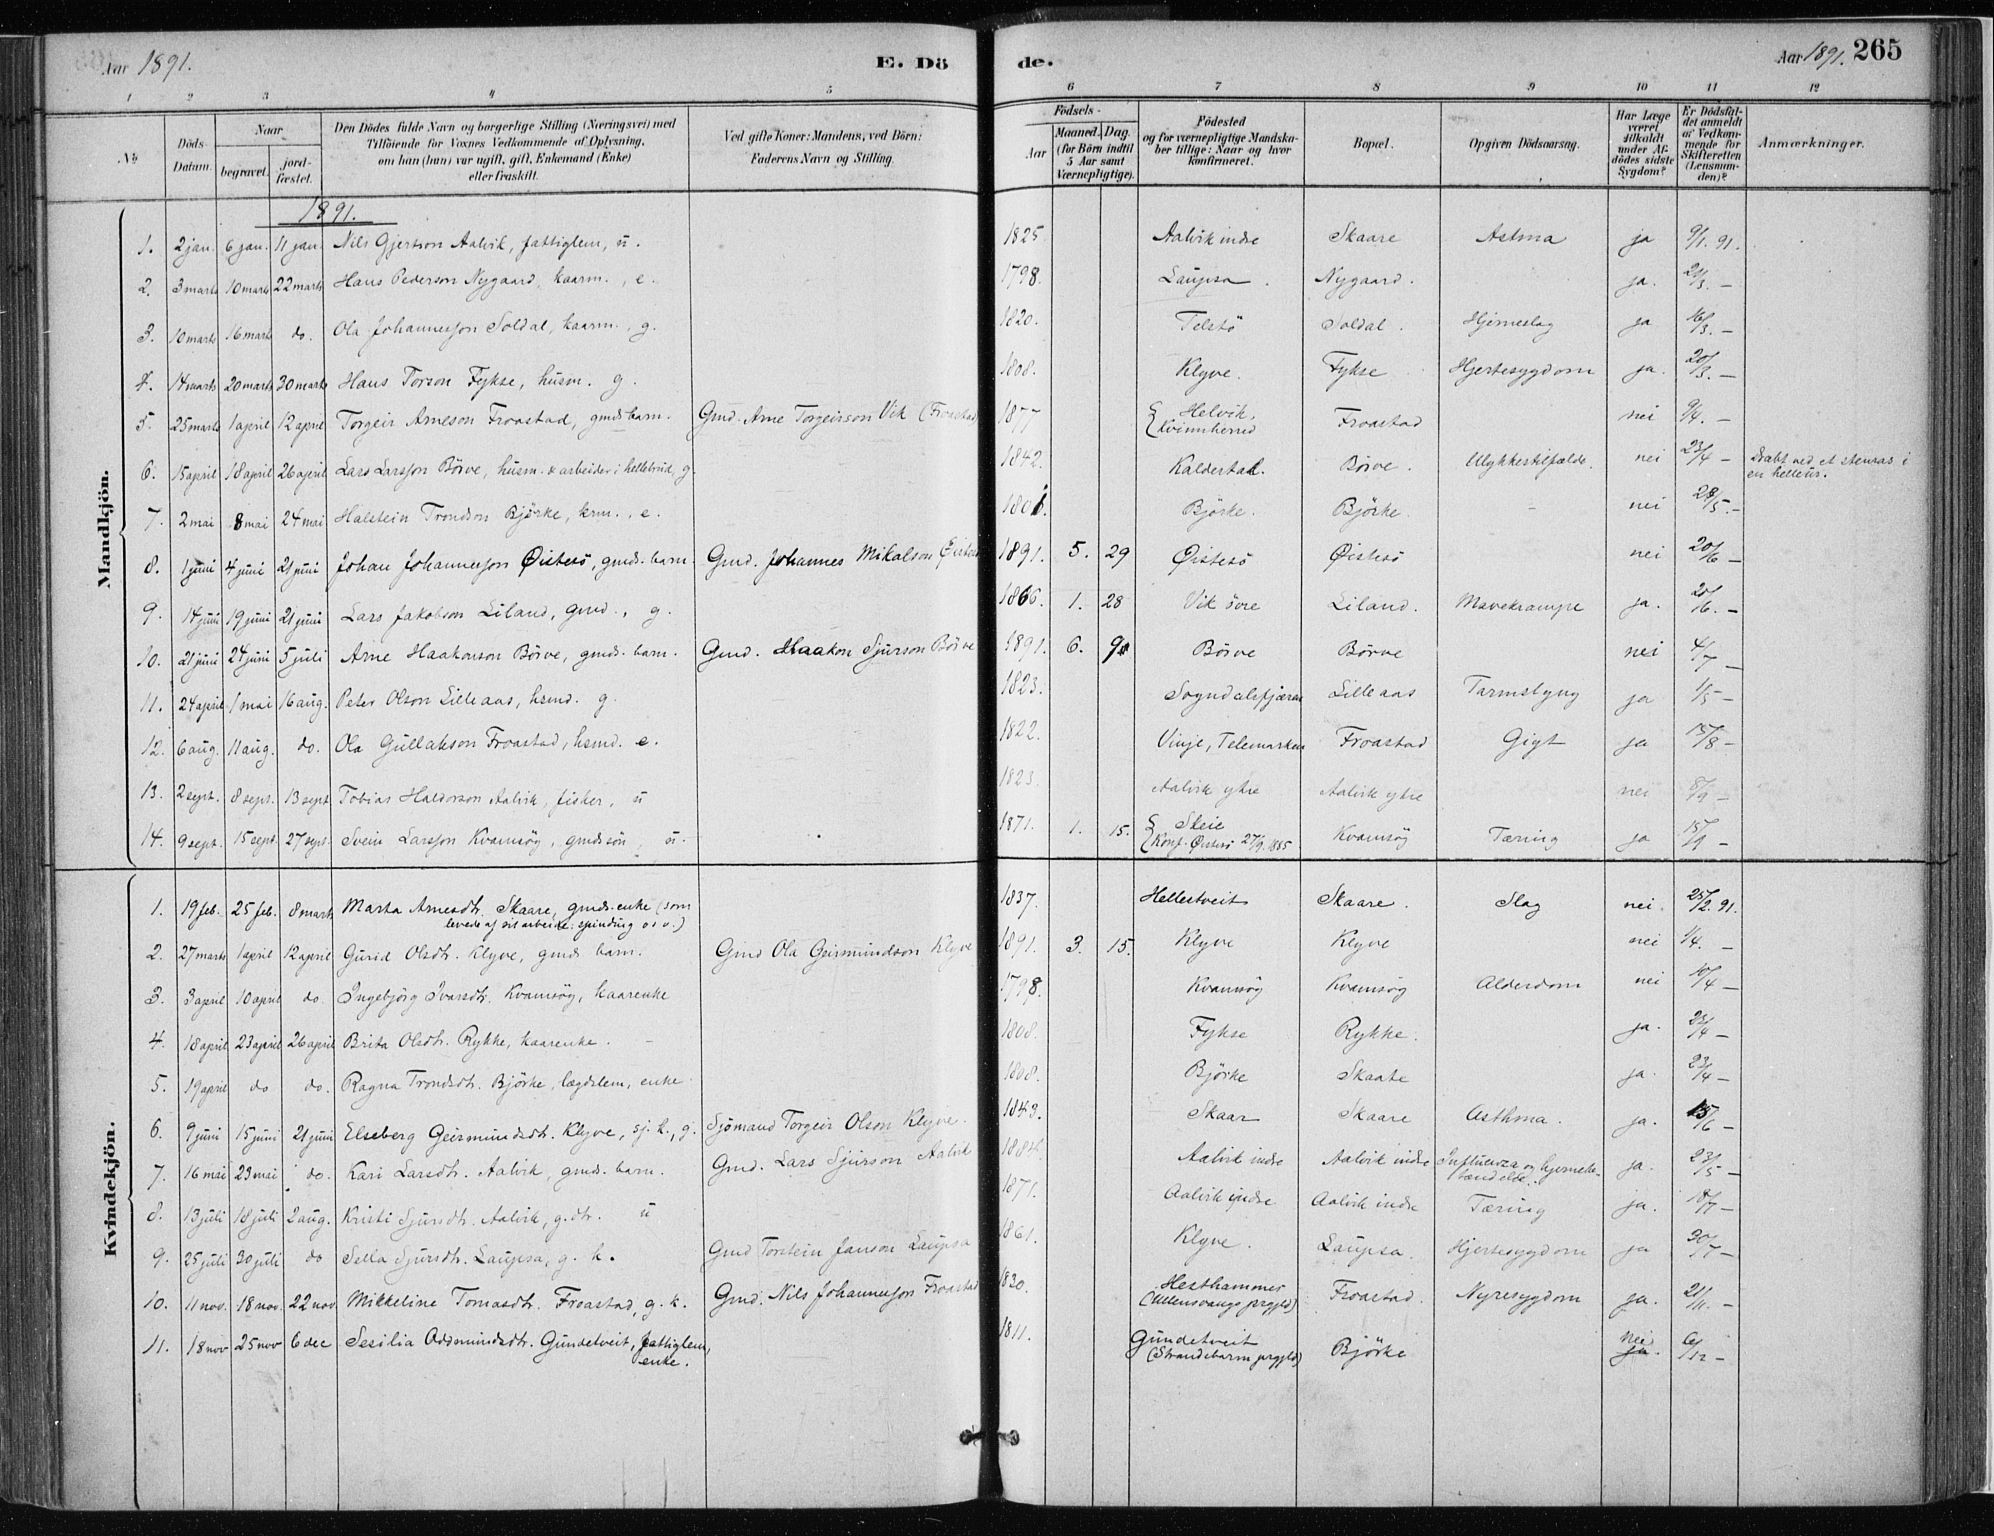 Aar 1891.
E. Dö
de.
Aar 1891. 265
1 2 3 4 5 6 7 8 9 10 11 12
No
Döds-Datum.
Naar
begravet.
jord-fæstet.
Den Dödes fulde Navn og borgerlige Stilling (Næringsvei) med
Tilföiende for Voxnes Vedkommende af Oplysning,
om han (hun) var ugift, gift, Enkemand (Enke)
eller fraskilt.
Ved gifte Koner: Mandens, ved Börn:
Faderens Navn og Stilling.
Födsels-
Aar
Maaned. Dag.
(for Börn indtil
5 Aar samt
Værnepligtige).
Födested
og for værnepligtige Mandska-
ber tillige: Naar og hvor
konfirmeret.
Bopæl.
Opgiven Dödsaarsag.
Har Læge
været
tilkaldt
under Af-
dödes sidste
Sygdom?
Er Dödsfal-
det anmeldt
af Vedkom-
mende for
Skifteretten
(Lensman-
den)?
Anmærkninger.
Mandkjön.
1891.
1. 2 jan. 6 jan. 11 jan. Nils Gjertson Aalvik, fattiglem, u. 1825 Aalvik indre Skaare Astma ja 9/1. 91.
2. 3 marts 10 marts 22 marts Hans Pederson Nygaard, kaarm., e. 1798. Laupsa. Nygaard. ja. 21/3. –
3. 10 marts 16 marts do. Ola Johannesson Soldal, kaarm., g. 1820. Telstö Soldal. Hjerneslag ja 16/3. –
4. 14 marts 20 marts 30 marts Hans Torson Fykse, husm. g. 1808. Klyve. Fykse Hjertesygdom ja. 20/3. –
5. 25 marts 1 april 12 april Torgeir Arneson Froastad, gmds barn. Gmd. Arne Torgeirson Vik (Froastad 1877 Helvik, Kvinnherred Froastad nei 9/4. –
6. 15 april 18 april 26 april Lars Larsson Börve, husm. & arbeider i hellebrud, g. 1842. Kaldestad. Börve. Ulykkestilfælde. nei 23/4 – Dræbt ved et stenras i
en helleur.
7. 2 mai 8 mai 24 mai Halstein Trondson Björke, krm., e. Björke. Björke. – nei 28/5. –
8. 1 juni 4 juni 21 juni Johan Johannesson Öistesö, gmds. barn. Gmd. Johannes Mikalson 1891. 5. 29 Öistesö Öistesö nei 20/6 –
9. 14 juni 19 juni 21 juni Lars Jakobson Liland, gmd., g. 1866. 1. 28 Vik övre Liland. Mavekrampe ja. 20/6. –
10. 21 juni 24 juni 5 juli Arne Haakonson Börve, gmds. barn. Gmd. Haakon Sjurson Börve 1891. 6. Börve Börve nei 4/7 –
11. 24 april 1 mai 16 aug. Peter Olson Lilleaas, hsmd. g. 1823. Sogndalsfjæren Lilleaas Tarmslyng ja 1/5 –
12. 6 aug. 11 aug. do. Ola Gullakson Froastad, hsmd. e. 1822. Vinje, Telemarken Froastad Gigt ja 15/8 –
13. 2 sept. 8 sept. 13 sept. Tobias Haldorson Aalvik, fisker, u 1823. Aalvik ytre Aalvik ytre nei 8/9 –
14. 9 sept. 15 sept. 27 sept. Svein Larsson Kvamsög, gmds sön, u. 1871. 1. 15. Steie Konf. Öistesö 27/9. 1885 Kvamsög Tæring ja 15/9 –
Kvindekjön.
1. 19 feb. 25 feb. 8 marts Marta Arnesdtr. Skaare, gmds. enke (som
levede af sit arbeide: spinding o s v.) 1837. Hellestveit Skaare. Slag nei. 25/2. 91.
2. 27 marts 1 april 12 april Gurid Olsdtr. Klyve, gmds barn. Gmd Ola Geirmundson Klyve 1891. 3. 15. Klyve Klyve nei 1/4. –
3. 3 april 10 april do. Ingebjörg Ivarsdtr. Kvamsög, kaarenke 1798. Kvamsög Kvamsög Alderdom nei 10/4 –
4. 18 april 23 april 26 april Brita Olsdtr. Rykke, kaarenke. – 1808. Fykse Rykke. ja. 23/4 –
5. 19 april do do. Ragna Trondsdtr. Björke, lægdslem, enke 1808. Björke Skaate ja. 23/4 –
6. 9 juni 15 juni 21 juni Elseberg Geirmundsdtr. Klyve, sj. k., g. Sjömand Torgeir Olson Klyve. 1843. Skaar Skaare Asthma. ja. 15/6 –
7. 16 mai 23 mai do. Kari Larsdtr. Aalvik, gmds. barn. Gmd. Lars Sjurson Aalvik 1884. Aalvik indre Aalvik indre Influenza og hjernebe-
tændelse. ja. 23/5 –
8. 13 juli 18 juli 2 aug. Kristi Sjursdtr. Aalvik, g. dtr. u 1871. Aalvik indre Aalvik indre Tæring ja. 18/7 –
9. 25 juli 30 juli do Sella Sjursdtr. Laupsa, g. k. Gmd Torstein Janson Laupsa 1861. Klyve. Laupsa. Hjertesygdom ja 30/7 –
10. 11 nov. 18 nov. 22 nov. Mikkeline Tomasdtr. Froastad, g. k. Gmd. Nils Johannesson Froastad 1830. Hesthammer
(Ullensvangs prgjld) Froastad. Nyresygdom ja. 21/11. –
11. 18 nov 25 nov 6 dec Sesilia Oddmundsdtr. Gundetveit, fattiglem,
enke. 1811. Gundetveit
(Strandebarm prgjld) Björke nei
ja. 6/12 –